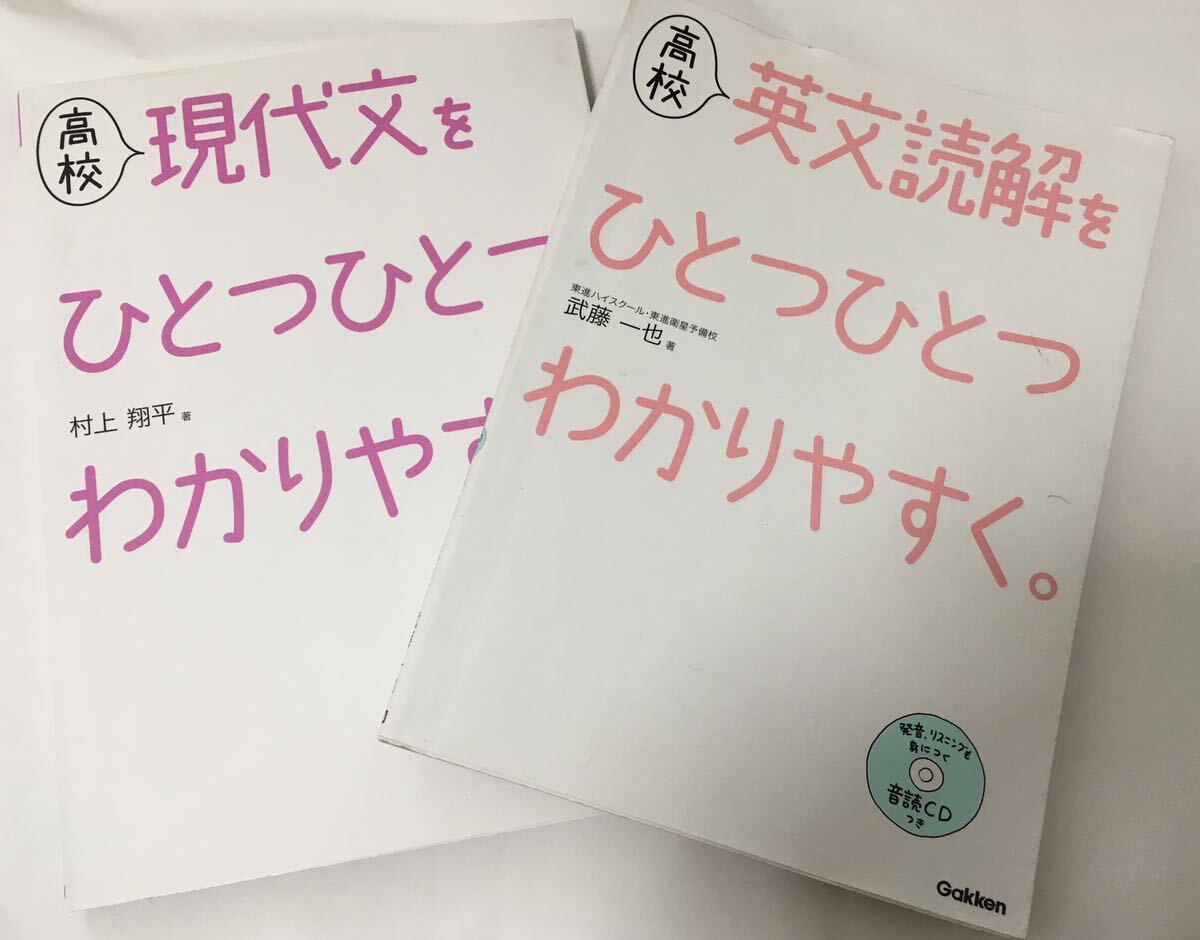 高校
現代文を
ひとつひとつ
村上 翔平 著
わかりやす
高校
英文読解を
ひとつひとつ
東進ハイスクール・東進衛星予備校
武藤 一也 著
わかりやすく。
発音、リスニングも
身につく
音読CD
つき
Gakken